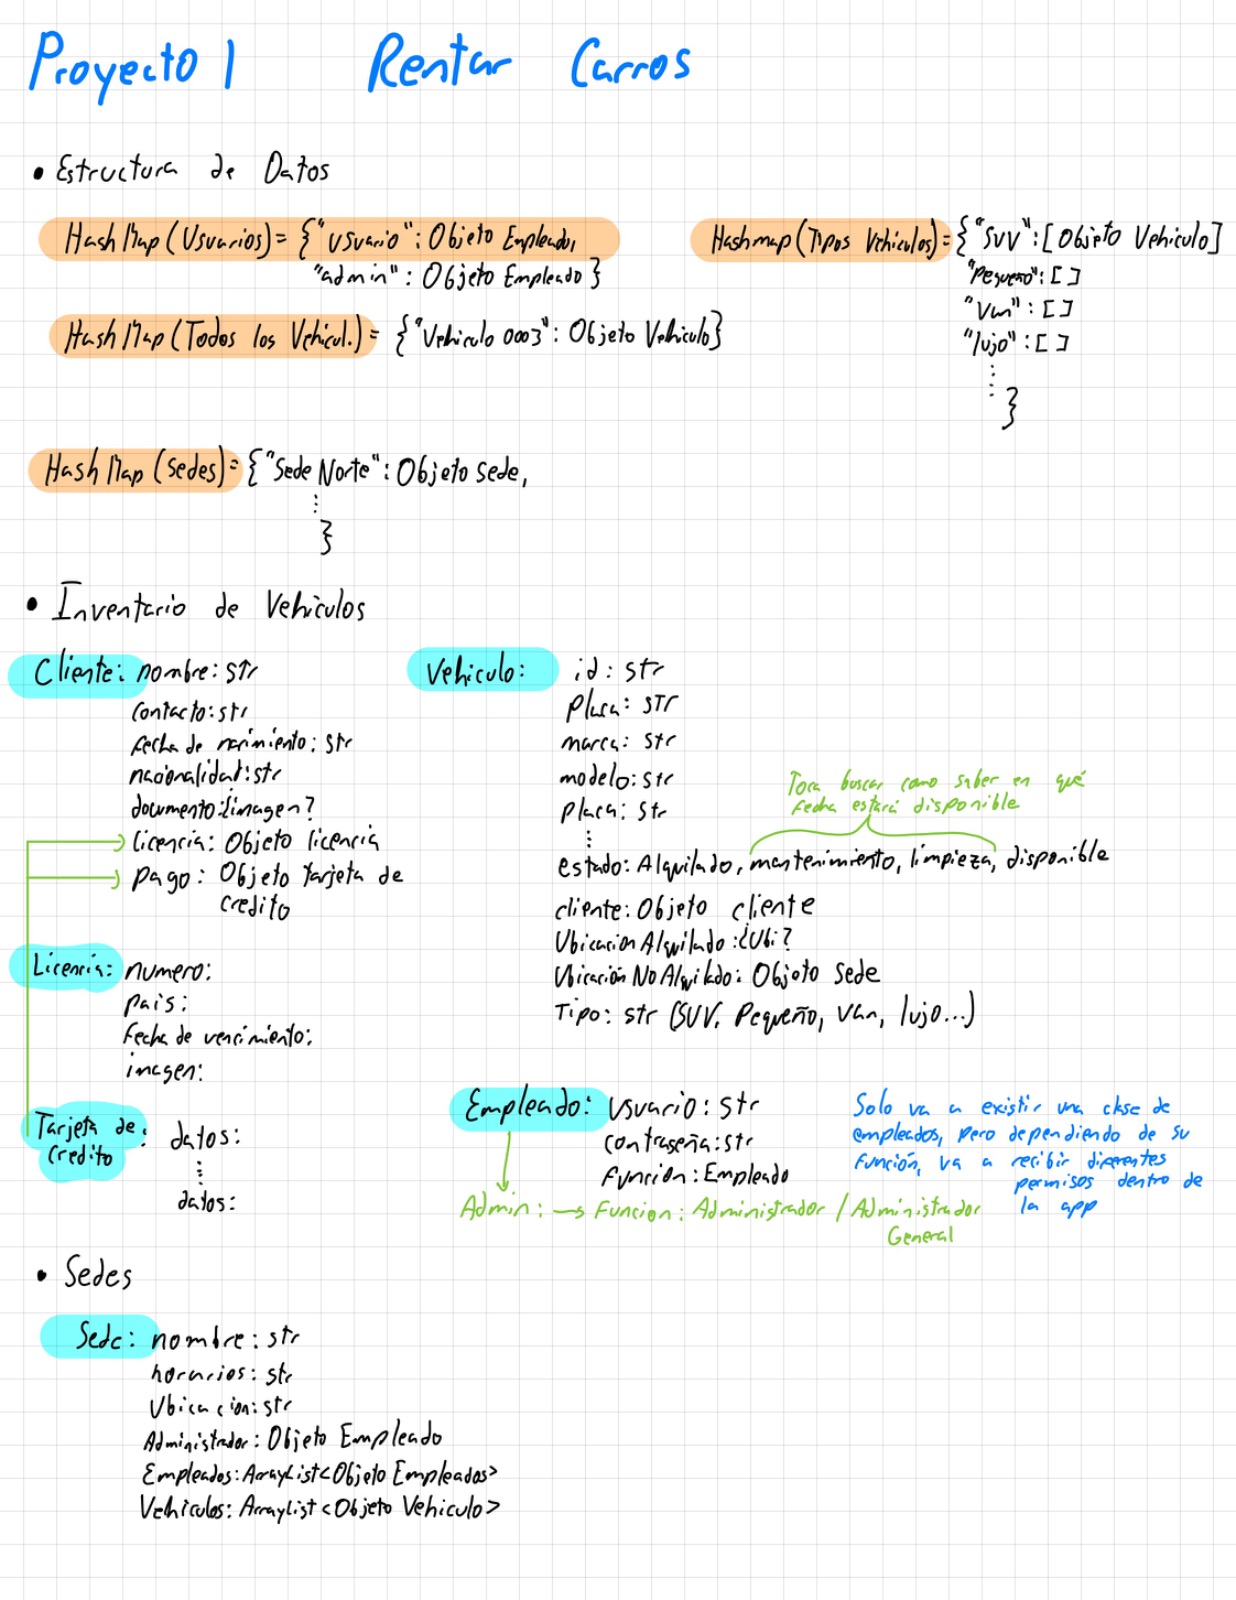 Proyecto 1 Rentar Carros
• Estructura de Datos
HashMap (Usuarios) = {"usuario": Objeto Empleado,
"admin": Objeto Empleado}
Hashmap (Tipos Vehiculos) = {"SUV": [Objeto Vehiculo]
"Pequeño": []
"Van": []
"lujo": []
⋮
}
HashMap (Todos los Vehicul.) = {"Vehiculo 0003": Objeto Vehiculo}
HashMap (Sedes) = {"Sede Norte": Objeto Sede,
⋮
}
• Inventario de Vehiculos
Cliente: nombre: str
contacto: str
Fecha de nacimiento: str
nacionalidad: str
documento: ¿imagen?
licencia: Objeto licencia
pago: Objeto tarjeta de
credito
Vehiculo: id: str
Placa: str
marca: str
modelo: str
placa: str
⋮
Toca buscar como saber en qué
Fecha estará disponible
estado: Alquilado, mantenimiento, limpieza, disponible
cliente: Objeto cliente
Ubicacion Alquilado: ¿Ubi?
Ubicación No Alquilado: Objeto Sede
Tipo: str (SUV, Pequeño, Van, lujo...)
Licencia: numero:
pais:
Fecha de vencimiento:
imagen:
Tarjeta de
credito : datos:
⋮
datos:
Empleado: Usuario: str
contraseña: str
Función: Empleado
Admin: → Funcion: Administrador / Administrador
General
Solo va a existir una clase de
empleados, pero dependiendo de su
función, va a recibir diferentes
permisos dentro de
la app
• Sedes
Sede: nombre: str
horarios: str
Ubicacion: str
Administrador: Objeto Empleado
Empleados: ArrayList<Objeto Empleados>
Vehiculos: ArrayList<Objeto Vehiculo>